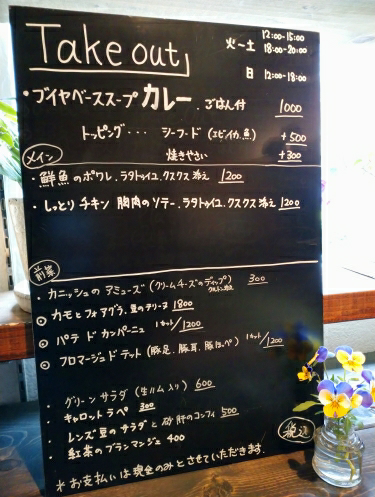 Take out
火〜土 12:00-15:00
18:00-20:00
日 12:00-18:00
・ブイヤベーススープカレー. ごはん付 1000
トッピング・・・ シーフード (エビ,イカ,魚) +500
焼きやさい +300
メイン
・鮮魚のポワレ. ラタトゥイユ. クスクス添え 1200
・しっとりチキン 胸肉のソテー. ラタトゥイユ. クスクス添え 1200
前菜
・カニッシュのアミューズ (クリームチーズのディップ) 300
◎カモとフォアグラ. 豆のテリーヌ 1800
◎パテ ド カンパーニュ 1カット/1200
◎フロマージュ ド テット (豚足. 豚耳. 豚ほっぺ) 1カット/1200
・グリーンサラダ (生ハム入り) 600
・キャロットラペ 300
・レンズ豆のサラダと砂肝のコンフィ 500
・紅茶のブランマンジェ 400
税込
*お支払いは現金のみとさせていただきます.